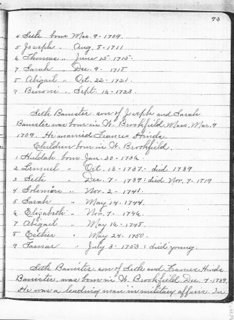 Seth born Mar. 9 - 1709.
5 Joseph " Aug. 5 - 1711.
6 Thomas " June
7 Sarah " Dec. 9 - 1718
8 Abigail " Oct. 22 - 1721.
9 " Sept. 12 - 1723.
Seth Banister son of Joseph and Sarah
Banister was born in W. Brookfield Mass. Mar. 9
1709. He married Frances Hinds
Children born in W. Brookfield.
1 Huldah born Jan. 22 - 1736
2 Lemuel " Oct. 12 - 1737 - died 1789
3 Seth " Dec. 7 - 1739 : died Nov. 7 -
4 Solomon " Nov. 2 - 1741.
5 Sarah " May 14 - 1744.
6 Elizabeth " Nov. 7 - 1746
7 Abigail " May 16 - 1748.
8 Esther " May 24 - 1750.
9 Tamar " July 8 - 1753 : died young.
Seth Banister son of Seth and Frances Hinds
Banister was born in W. Brookfield Dec. 7 - 1739.
He was a leading man in military affairs